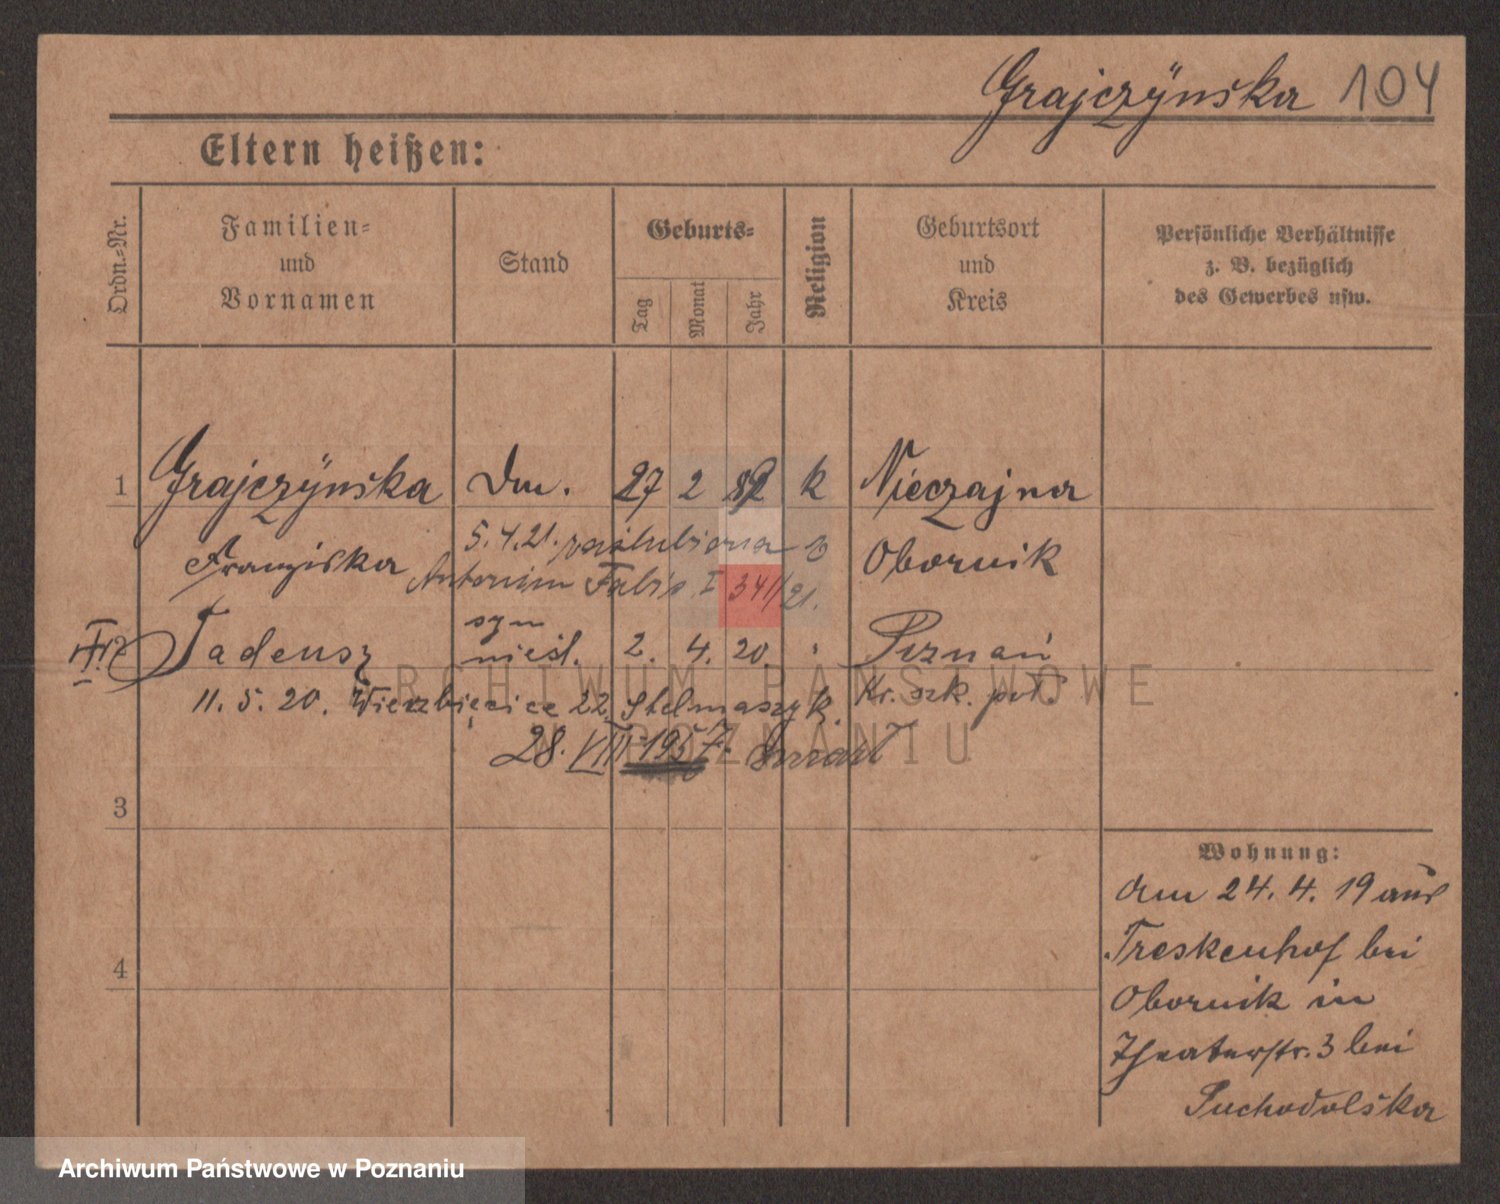 Grajczÿnska 104
Eltern heißen:
Ordn.-Nr.
Familien-
und
Vornamen
Stand
Geburts-
Tag
Monat
Jahr
Religion
Geburtsort
und
Kreis
Persönliche Verhältnisse
z. B. bezüglich
des Gewerbes usw.
1 Grajczÿnska Dm. 27 2 k Nieczajna
Franziska 5.4.21. zaślubiona Obornik
Antonim Fabiś I 341/21.
syn
Tadeusz nieśl. 2. 4. 20. Poznań
11. 5. 20. Wierzbięcice 22 Stelmaszyk. Kr. szk. pol.
28. VIII 1957.
3
4
Wohnung:
am 24. 4. 19 aus
Treskenhof bei
Obornik in
Theaterstr. 3 bei
Suchodolska
ARCHIWUM PAŃSTWOWE
W POZNANIU
Archiwum Państwowe w Poznaniu